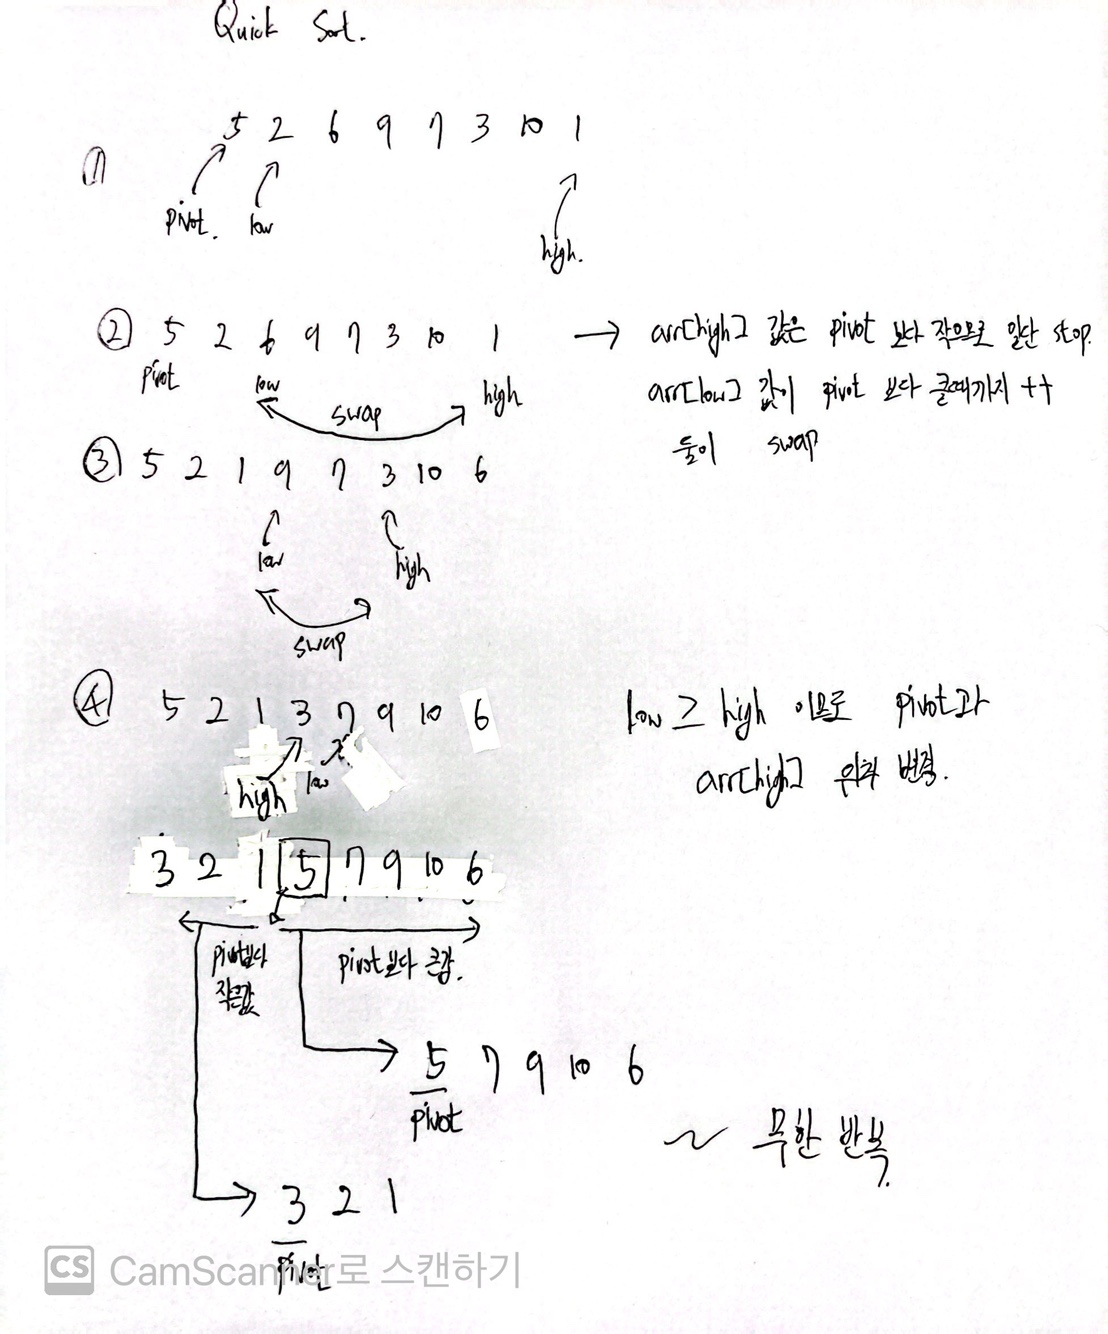 Quick Sort.
5 2 6 9 7 3 10 1
①
pivot. low
high.
② 5 2 6 9 7 3 10 1 → arr[high] 값은 pivot 보다 작으므로 일단 stop.
pivot low high
arr[low] 값이 pivot 보다 클때까지 ++
swap
둘이 swap
③ 5 2 1 9 7 3 10 6
low high
swap
④ 5 2 1 3 7 9 10 6
low ≥ high 이므로 pivot과
high low
arr[high] 위치 변경.
3 2 1 5 7 9 10 6
pivot보다
작은값
pivot보다 큰값.
5 7 9 10 6
pivot
~ 무한 반복.
3 2 1
pivot
CS CamScanner로 스캔하기